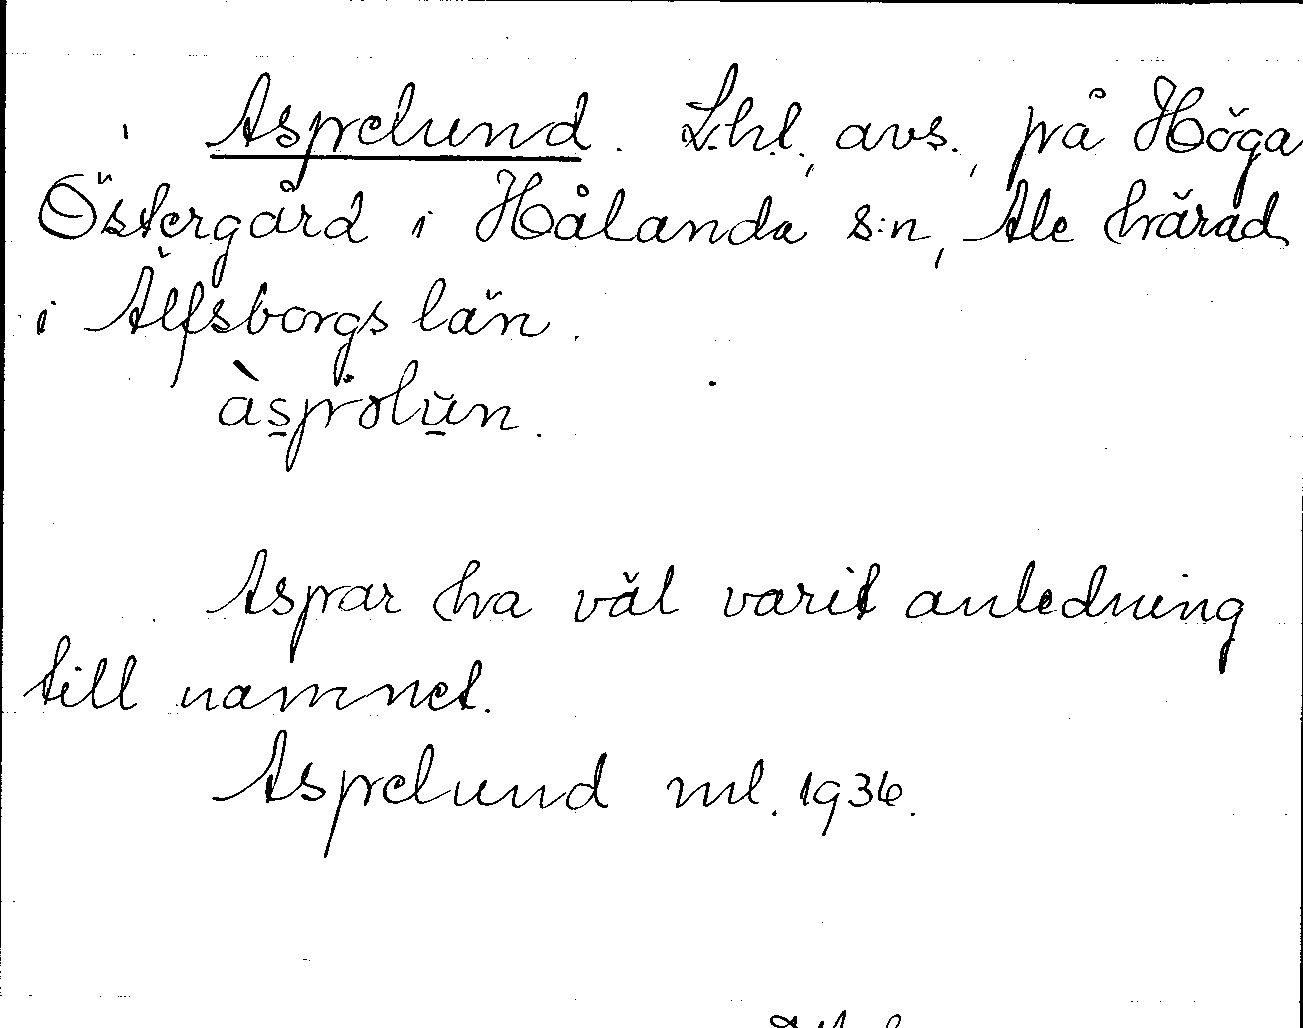 Aspelund. Lhl., avs., på Höga
Östergård i Hålanda s:n, Ale härad
i Älfsborgs län.
àspolun.
Aspar ha väl varit anledning
till namnet.
Aspelund ml. 1936.